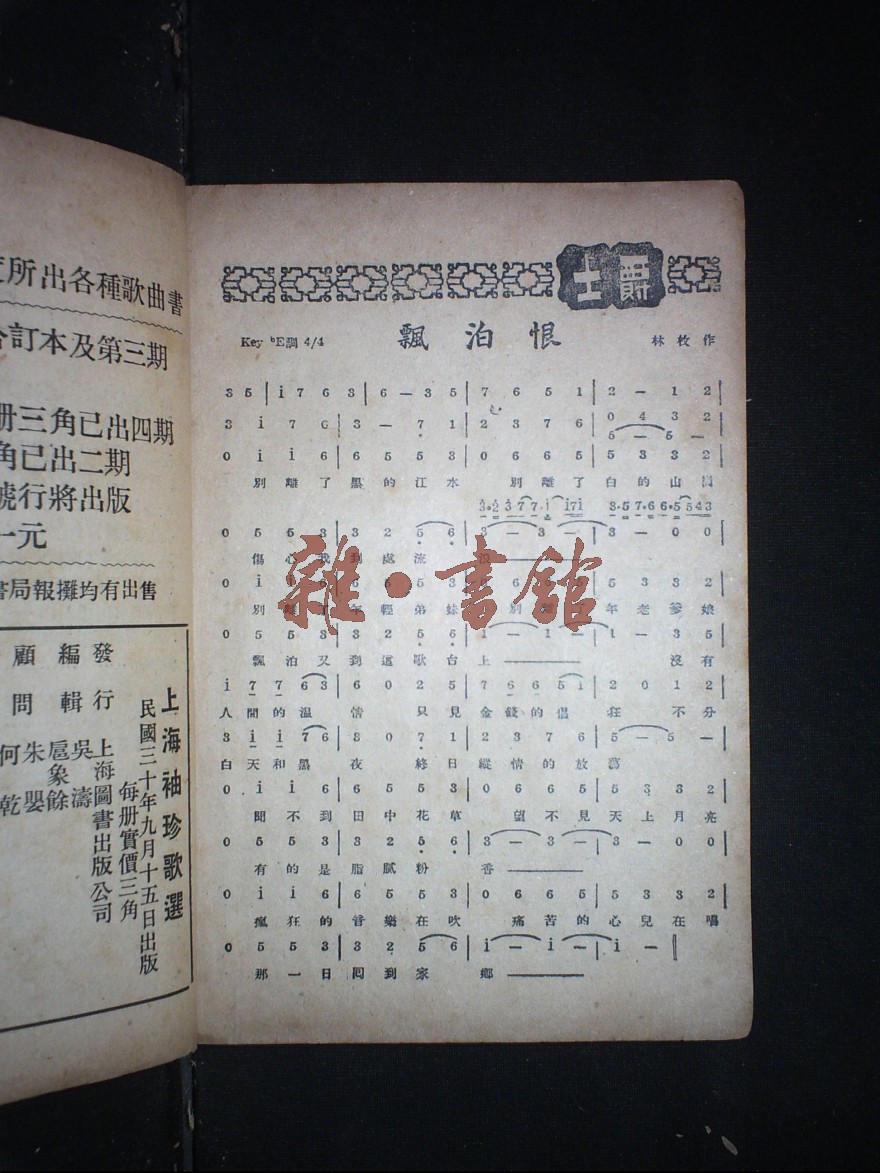 所出各種歌曲書
訂本及第三期
冊三角已出四期
角已出二期
號行將出版
一元
書局報攤均有出售
上海袖珍歌選
民國三十年九月十五日出版
每册實價三角
發行 上海圖書出版公司
編輯 吳濤
扈象餘
顧問 朱嬰
何乾
爵士
Key ♭E調 4/4
飄泊恨
林枚作
3 5 | i 7 6 3 | 6 — 3 5 | 7 6 5 1 | 2 — 1 2 |
3 i 7 6 | 3 — 7 1 | 2 3 7 6 | 5 — 5 — |
0 4 3 2
0 i i 6 | 6 5 5 3 | 0 6 6 5 | 5 3 3 2 |
別離了黑的江水 別離了白的山岡
0 5 5 3 | 3 2 5 6 | 3 — 3 — | 3 — 0 0 |
傷心我到處流浪
0 i i 6 | 6 5 5 3 | 0 6 6 5 | 5 3 3 2 |
別離了年輕弟妹 別離了年老爹娘
0 5 5 3 | 3 2 5 6 | 1 — 1 — | 1 — 3 5 |
飄泊又到這歌台上 沒有
i 7 7 6 3 | 6 0 2 5 | 7 6 6 5 1 | 2 0 1 2 |
人間的温情 只見金錢的倡狂 不分
3 i i 7 6 | 3 0 7 1 | 2 3 7 6 | 5 — 5 — |
白天和黑夜 終日縱情的放蕩
0 i i 6 | 6 5 5 3 | 0 6 6 5 | 5 3 3 2 |
聞不到田中花草 望不見天上月亮
0 5 5 3 | 3 2 5 6 | 3 — 3 — | 3 — 0 0 |
有的是脂膩粉香
0 i i 6 | 6 5 5 3 | 0 6 6 5 | 5 3 3 2 |
瘋狂的音樂在吹 痛苦的心兒在唱
0 5 5 3 | 3 2 5 6 | i — i — | i — ‖
那一日囘到家鄉
雜·書館